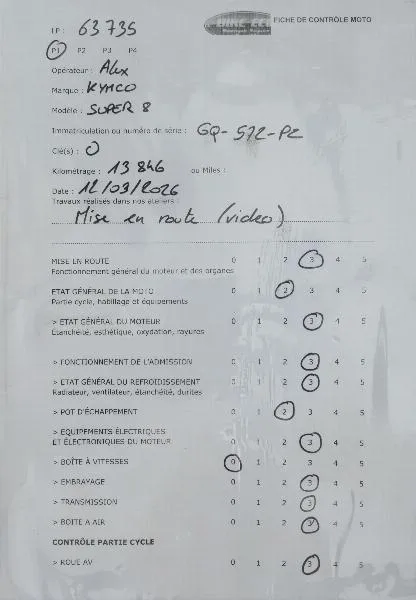 IP : 63735
FICHE DE CONTRÔLE MOTO
P1 P2 P3 P4
Opérateur : Alex
Marque : KYMCO
Modèle : SUPER 8
Immatriculation ou numéro de série : GQ-572-PZ
Clé(s) : 0
Kilométrage : 13 846 ou Miles :
Date : 12/03/2026
Travaux réalisés dans nos ateliers :
Mise en route (video)
MISE EN ROUTE 0 1 2 3 4 5
Fonctionnement général du moteur et des organes
ETAT GÉNÉRAL DE LA MOTO 0 1 2 3 4 5
Partie cycle, habillage et équipements
> ETAT GÉNÉRAL DU MOTEUR 0 1 2 3 4 5
Étanchéité, esthétique, oxydation, rayures
> FONCTIONNEMENT DE L'ADMISSION 0 1 2 3 4 5
> ETAT GÉNÉRAL DU REFROIDISSEMENT 0 1 2 3 4 5
Radiateur, ventilateur, étanchéité, durites
> POT D'ÉCHAPPEMENT 0 1 2 3 4 5
> EQUIPEMENTS ÉLECTRIQUES
ET ÉLECTRONIQUES DU MOTEUR 0 1 2 3 4 5
> BOÎTE À VITESSES 0 1 2 3 4 5
> EMBRAYAGE 0 1 2 3 4 5
> TRANSMISSION 0 1 2 3 4 5
> BOITE A AIR 0 1 2 3 4 5
CONTRÔLE PARTIE CYCLE
> ROUE AV 0 1 2 3 4 5